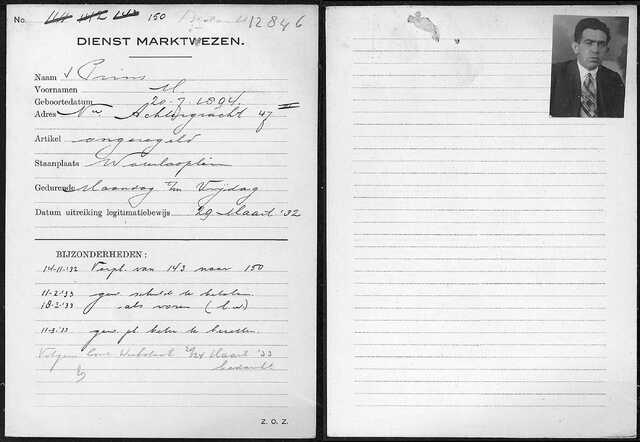 No. 150 12846
DIENST MARKTWEZEN.
Naam Prins
Voornamen M.
Geboortedatum 20-7-1894
Adres Nwe Achtergracht 47 II
Artikel ongeregeld
Staanplaats Waterlooplein
Gedurende Maandag t/m Vrijdag
Datum uitreiking legitimatiebewijs 29 Maart '32
BIJZONDERHEDEN:
14-11-'32 Verpl. van 143 naar 150
11-2-'33 gew. schuld te betalen
18-2-'33 als voren
11-3-'33 gew.
Volgens Maart '33
Z. O. Z.